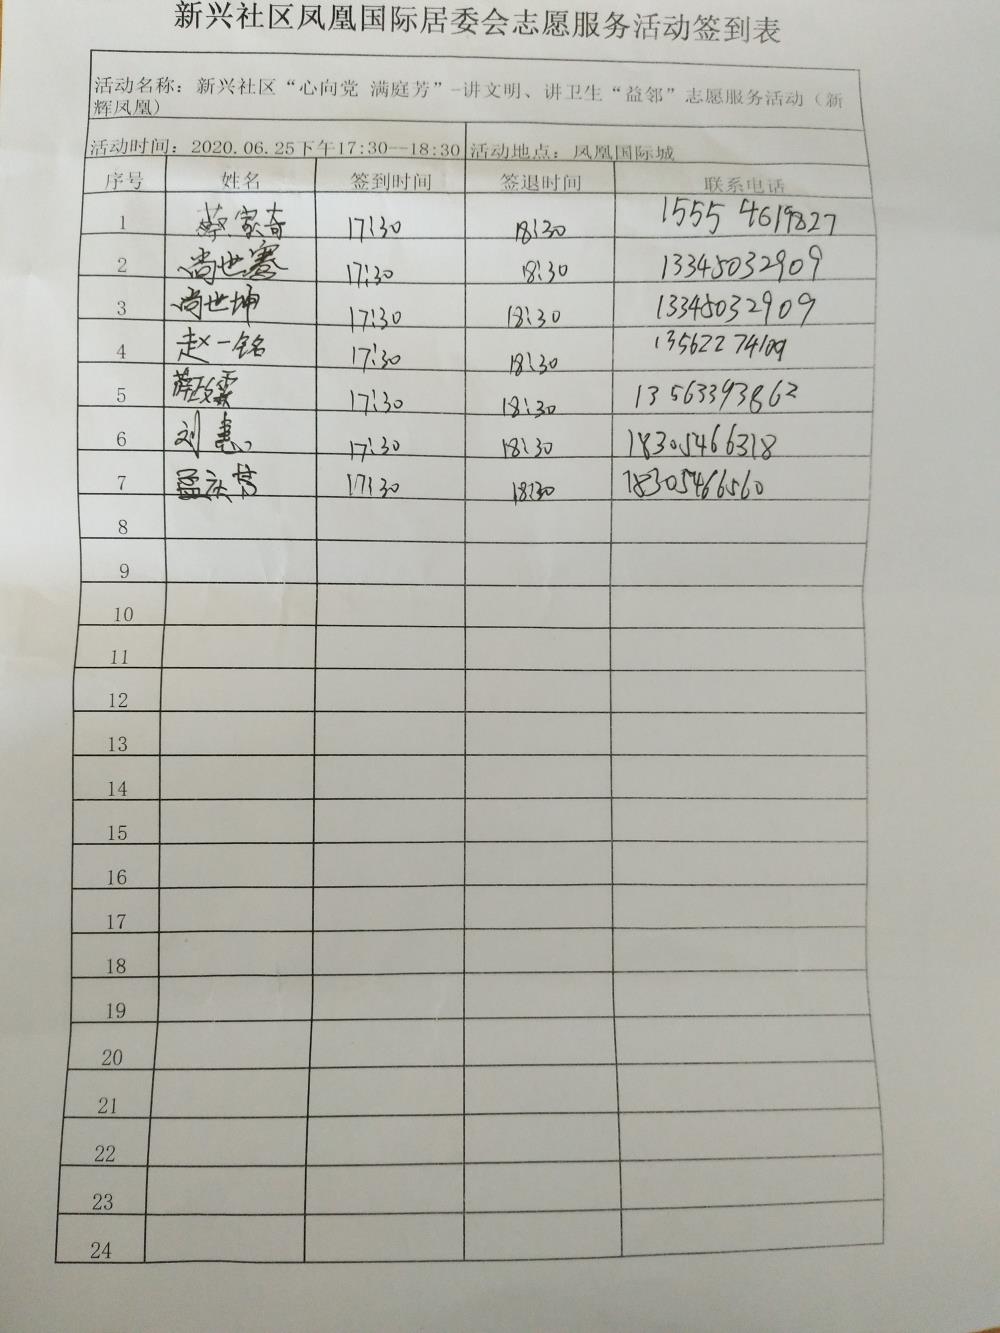 新兴社区凤凰国际居委会志愿服务活动签到表
活动名称：新兴社区“心向党 满庭芳”-讲文明、讲卫生“益邻”志愿服务活动（新
辉凤凰）
活动时间：2020.06.25下午17:30--18:30 活动地点：凤凰国际城
序号 姓名 签到时间 签退时间 联系电话
1 蔡家奇 17:30 18:30 1555 4619827
2 尚世赛 17:30 18:30 13345032909
3 尚世坤 17:30 18:30 13345032909
4 赵一铭 17:30 18:30 13562274109
5 薛政霖 17:30 18:30 13563393862
6 刘惠 17:30 18:30 18305466318
7 孟庆 17:30 18:30 18305466560
8
9
10
11
12
13
14
15
16
17
18
19
20
21
22
23
24